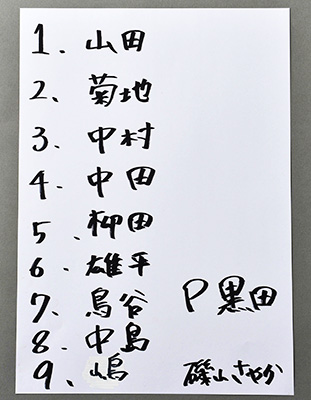 1、山田
2、菊地
3、中村
4、中田
5、柳田
6、雄平
7、鳥谷
P 黒田
8、中島
9、嶋
磯山さやか